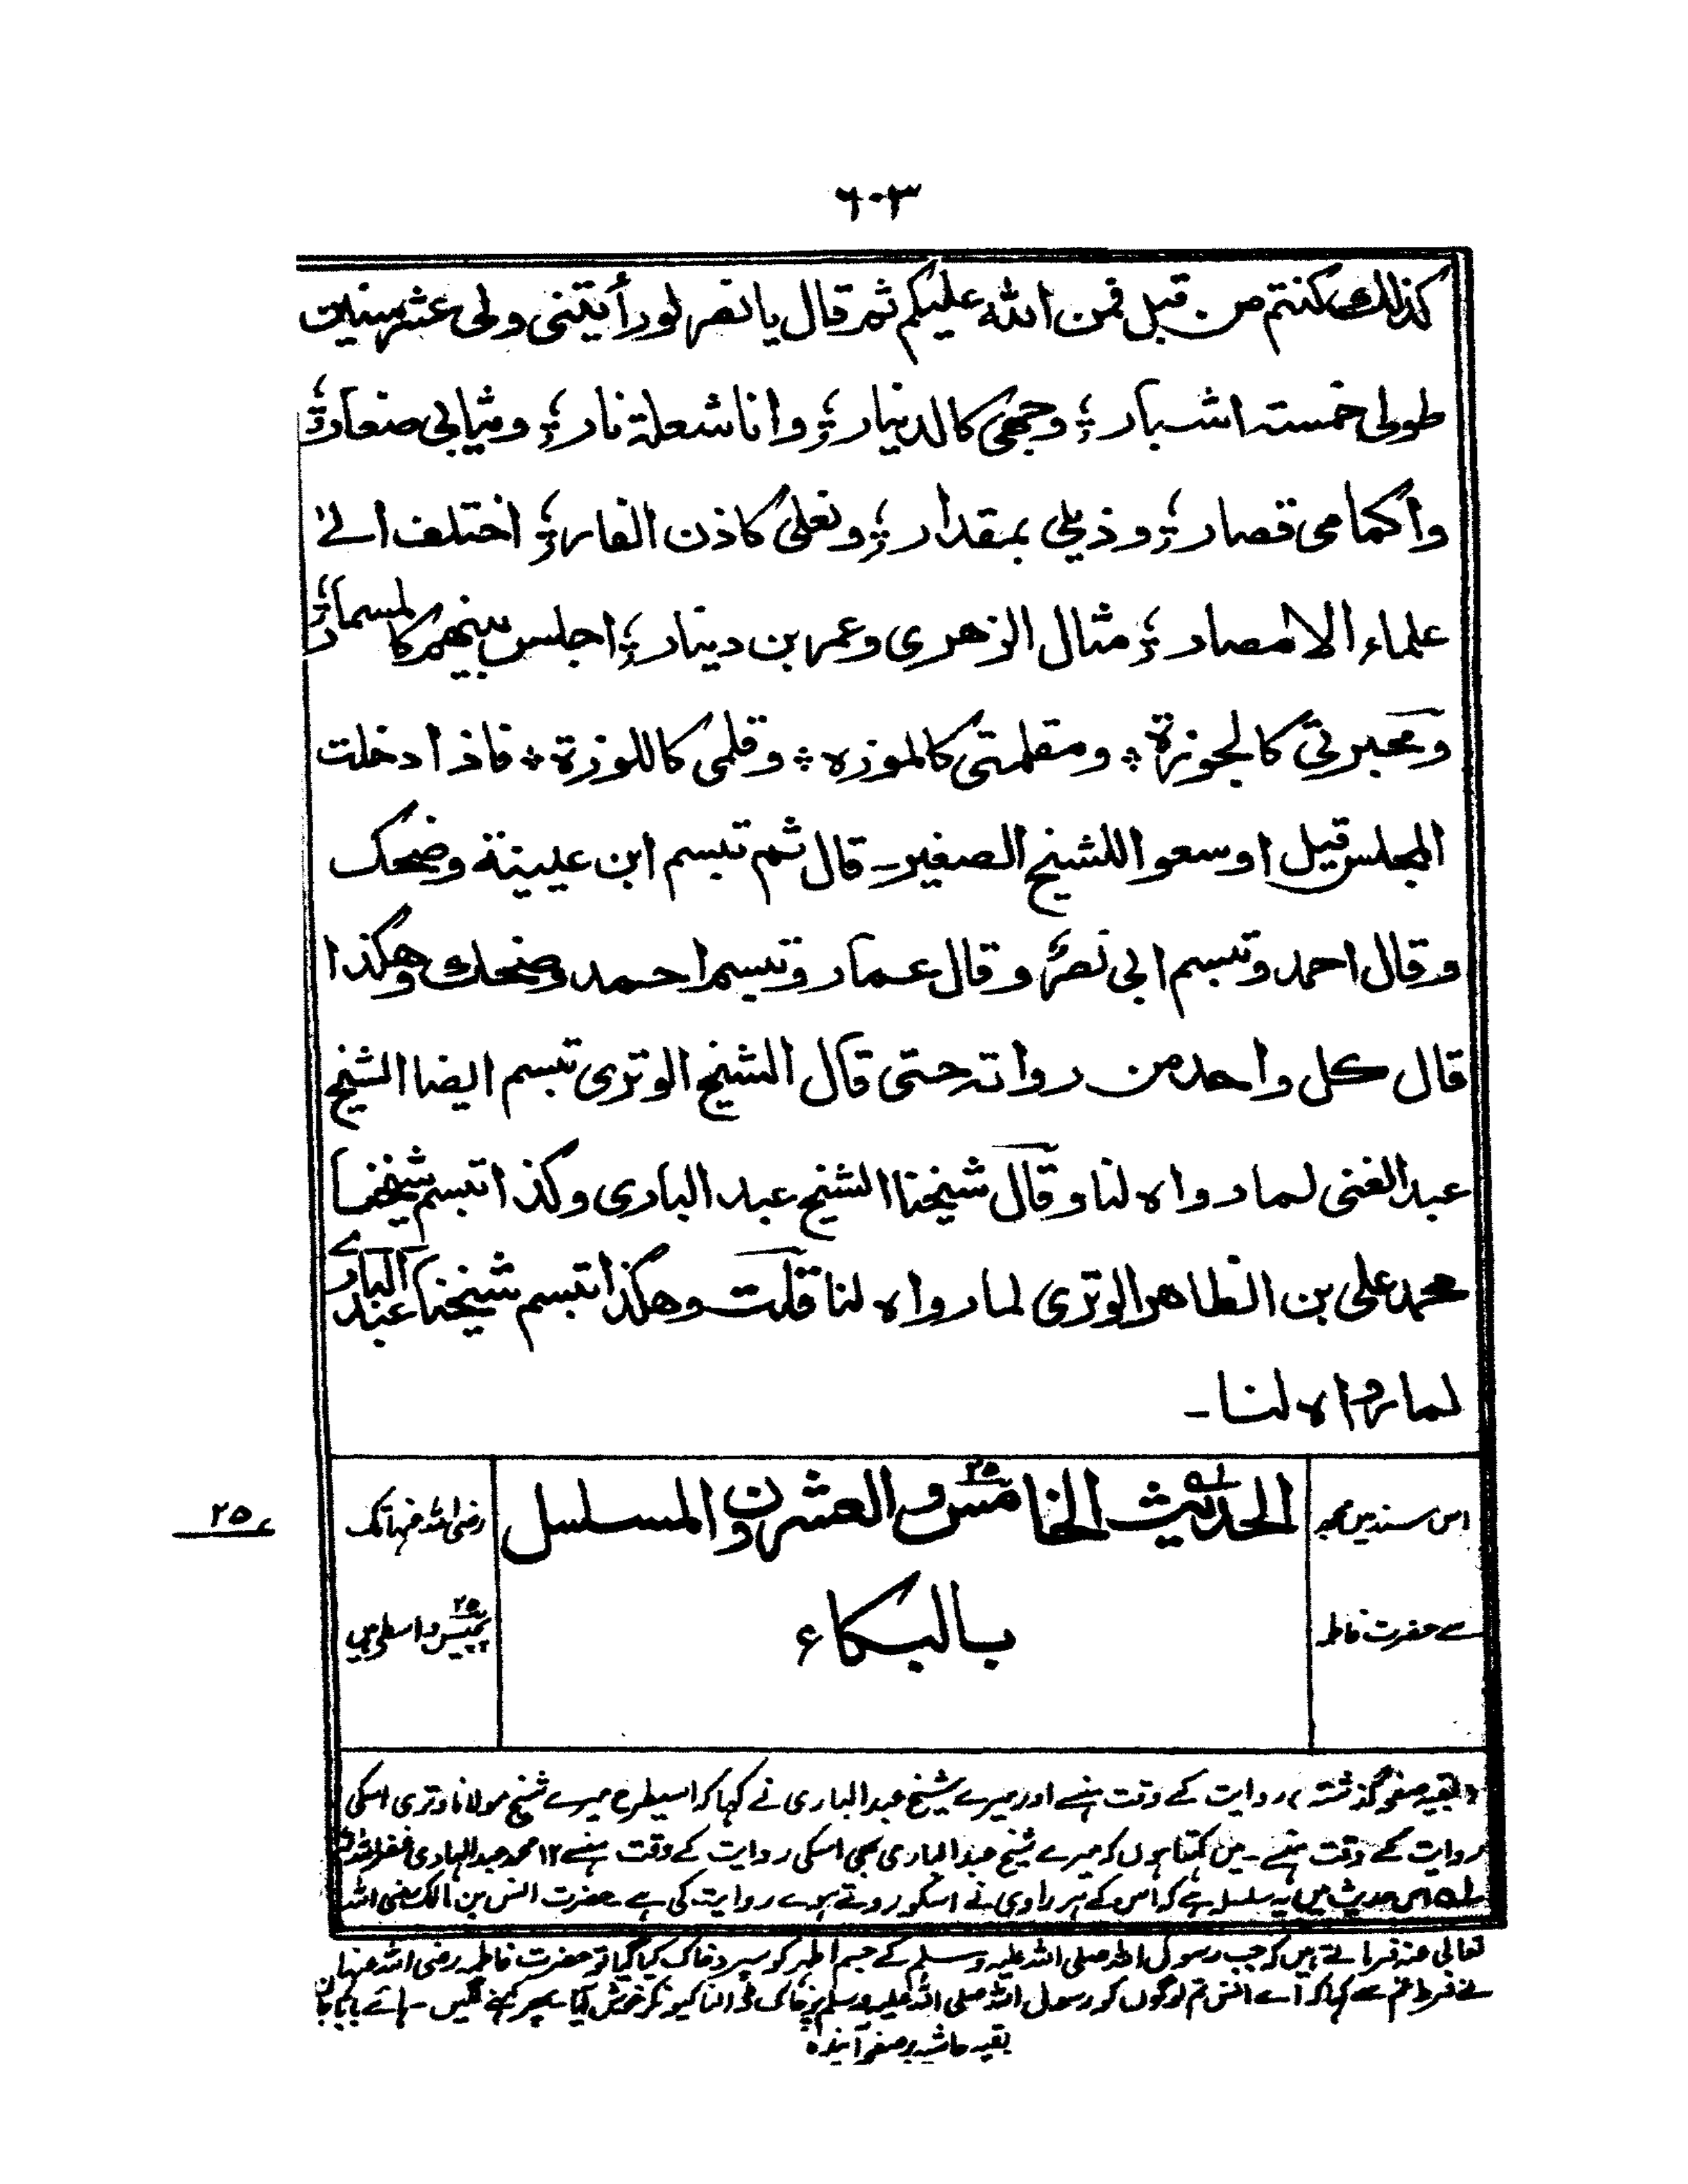 ٦٠٣
كذلك كنتم من قبل فمن الله عليكم ثم قال يا نصر لو رأيتنى ولى عشر سنين
طولى خمسة اشبار ؛ وجهى كالدينار ؛ وانا شعلة نار ؛ وثيابى صغار ؛
وأكمامى قصار ؛ وذيلى بمقدار ؛ ونعلى كاذن الفار ؛ اختلف الى
علماء الامصار ؛ مثال الزهرى وعمر بن دينار ؛ اجلس بينهم كالمسمار ؛
ومحبرتى كالجوزة ؞ ومقلمتى كالموزه ؞ وقلمى كاللوزة ؞ فاذا دخلت
المجلس قيل اوسعوا للشيخ الصغير۔ قال ثم تبسم ابن عيينة وضحك
وقال احمد وتبسم ابى نصر وقال عمار وتبسم احمد وضحك وهكذا
قال كل واحد من رواته حتى قال الشيخ الوترى تبسم ايضا الشيخ
عبد الغنى لما رواه لنا وقال شيخنا الشيخ عبد البارى وكذا تبسم شيخنا
محمد على بن الظاهر الوترى لما رواه لنا قلت وهكذا تبسم شيخنا عبد البارے
لما رواه لنا۔
الحديث الخامس والعشرون المسلسل ٢٥
بالبكاء
اس سند میں مجھ
سے حضرت فاطمہ
رضی اللہ عنہا تک
٢٥ پچیس واسطے ہیں
٢٥
(بقیہ صفحہ گذشتہ) روایت کے وقت ہنسے اور میرے شیخ عبد الباری نے کہا کہ اسیطرح میرے شیخ مولانا وتری اسکی
روایت کے وقت ہنسے۔ میں کہتا ہوں کہ میرے شیخ عبد الباری بھی اسکی روایت کے وقت ہنسے ١٢ محمد عبد الہادی غفر اللہ لہ
لہ اس حدیث میں یہ سلسل ہے کہ اس کے ہر راوی نے اسکو روتے ہوے روایت کی ہے۔ حضرت انس بن مالک رضی اللہ
تعالی عنہ فرماتے ہیں کہ جب رسول اللہ صلی اللہ علیہ وسلم کے جسم اطہر کو سپرد خاک کیا گیا تو حضرت فاطمہ رضی اللہ عنہا
نے فرط غم سے کہا کہ اے انس تم لوگوں کو رسول اللہ صلی اللہ علیہ وسلم پر خاک ڈالنا کیونکر خوش کیا۔ پھر کہنے لگیں۔ ہائے
بقیہ حاشیہ بر صفحہ آیندہ